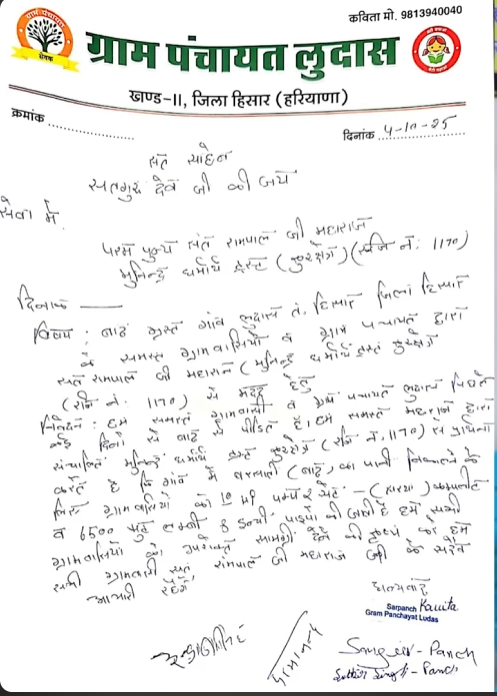 कविता मो. 9813940040
ग्राम पंचायत लुदास
खण्ड-II, जिला हिसार (हरियाणा)
क्रमांक
दिनांक 4-10-25
सत साहेब
सतगुरु देव जी की जय
सेवा में
परम पूज्य संत रामपाल जी महाराज
मुनिन्द्र धर्मार्थ ट्रस्ट (कुरुक्षेत्र) (रजि नं: 1170)
दिनांक
विषय: बाढ़ ग्रस्त गांव लुदास त. हिसार जिला हिसार
के समस्त ग्रामवासियों व ग्राम पंचायत द्वारा
संत रामपाल जी महाराज (मुनिन्द्र धर्मार्थ ट्रस्ट कुरुक्षेत्र)
(रजि नं. 1170) से मदद हेतु
निवेदन: हम समस्त ग्रामवासी व ग्राम पंचायत लुदास पिछले
कई दिनों से बाढ़ से पीड़ित हैं। हम समस्त महाराज द्वारा
संचालित मुनिन्द्र धर्मार्थ ट्रस्ट कुरुक्षेत्र (रजि नं. 1170) से प्रार्थना
करते है कि गांव में बरसाती (बाढ़) का पानी निकालने के
लिए ग्रामवासियों को 10 पम्प सेट
व 6500 फुट लम्बी 8 इन्ची पाईपों की जरूरत है हमें सभी
ग्रामवासियों को उपरोक्त सामग्री देने की कृपा करे हम
सभी ग्रामवासी संत रामपाल जी महाराज जी के सदैव
आभारी रहेंगे
धन्यवाद
Sarpanch Kavita
Gram Panchayat Ludas
परमानन्द
Panch
Singh - Panch